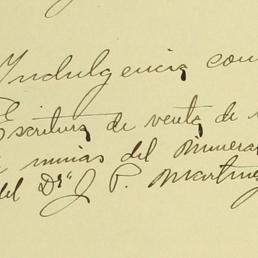 Indulgencia con
Escritura de venta de
minas del Mineral
del Dr. J. P. Martinez